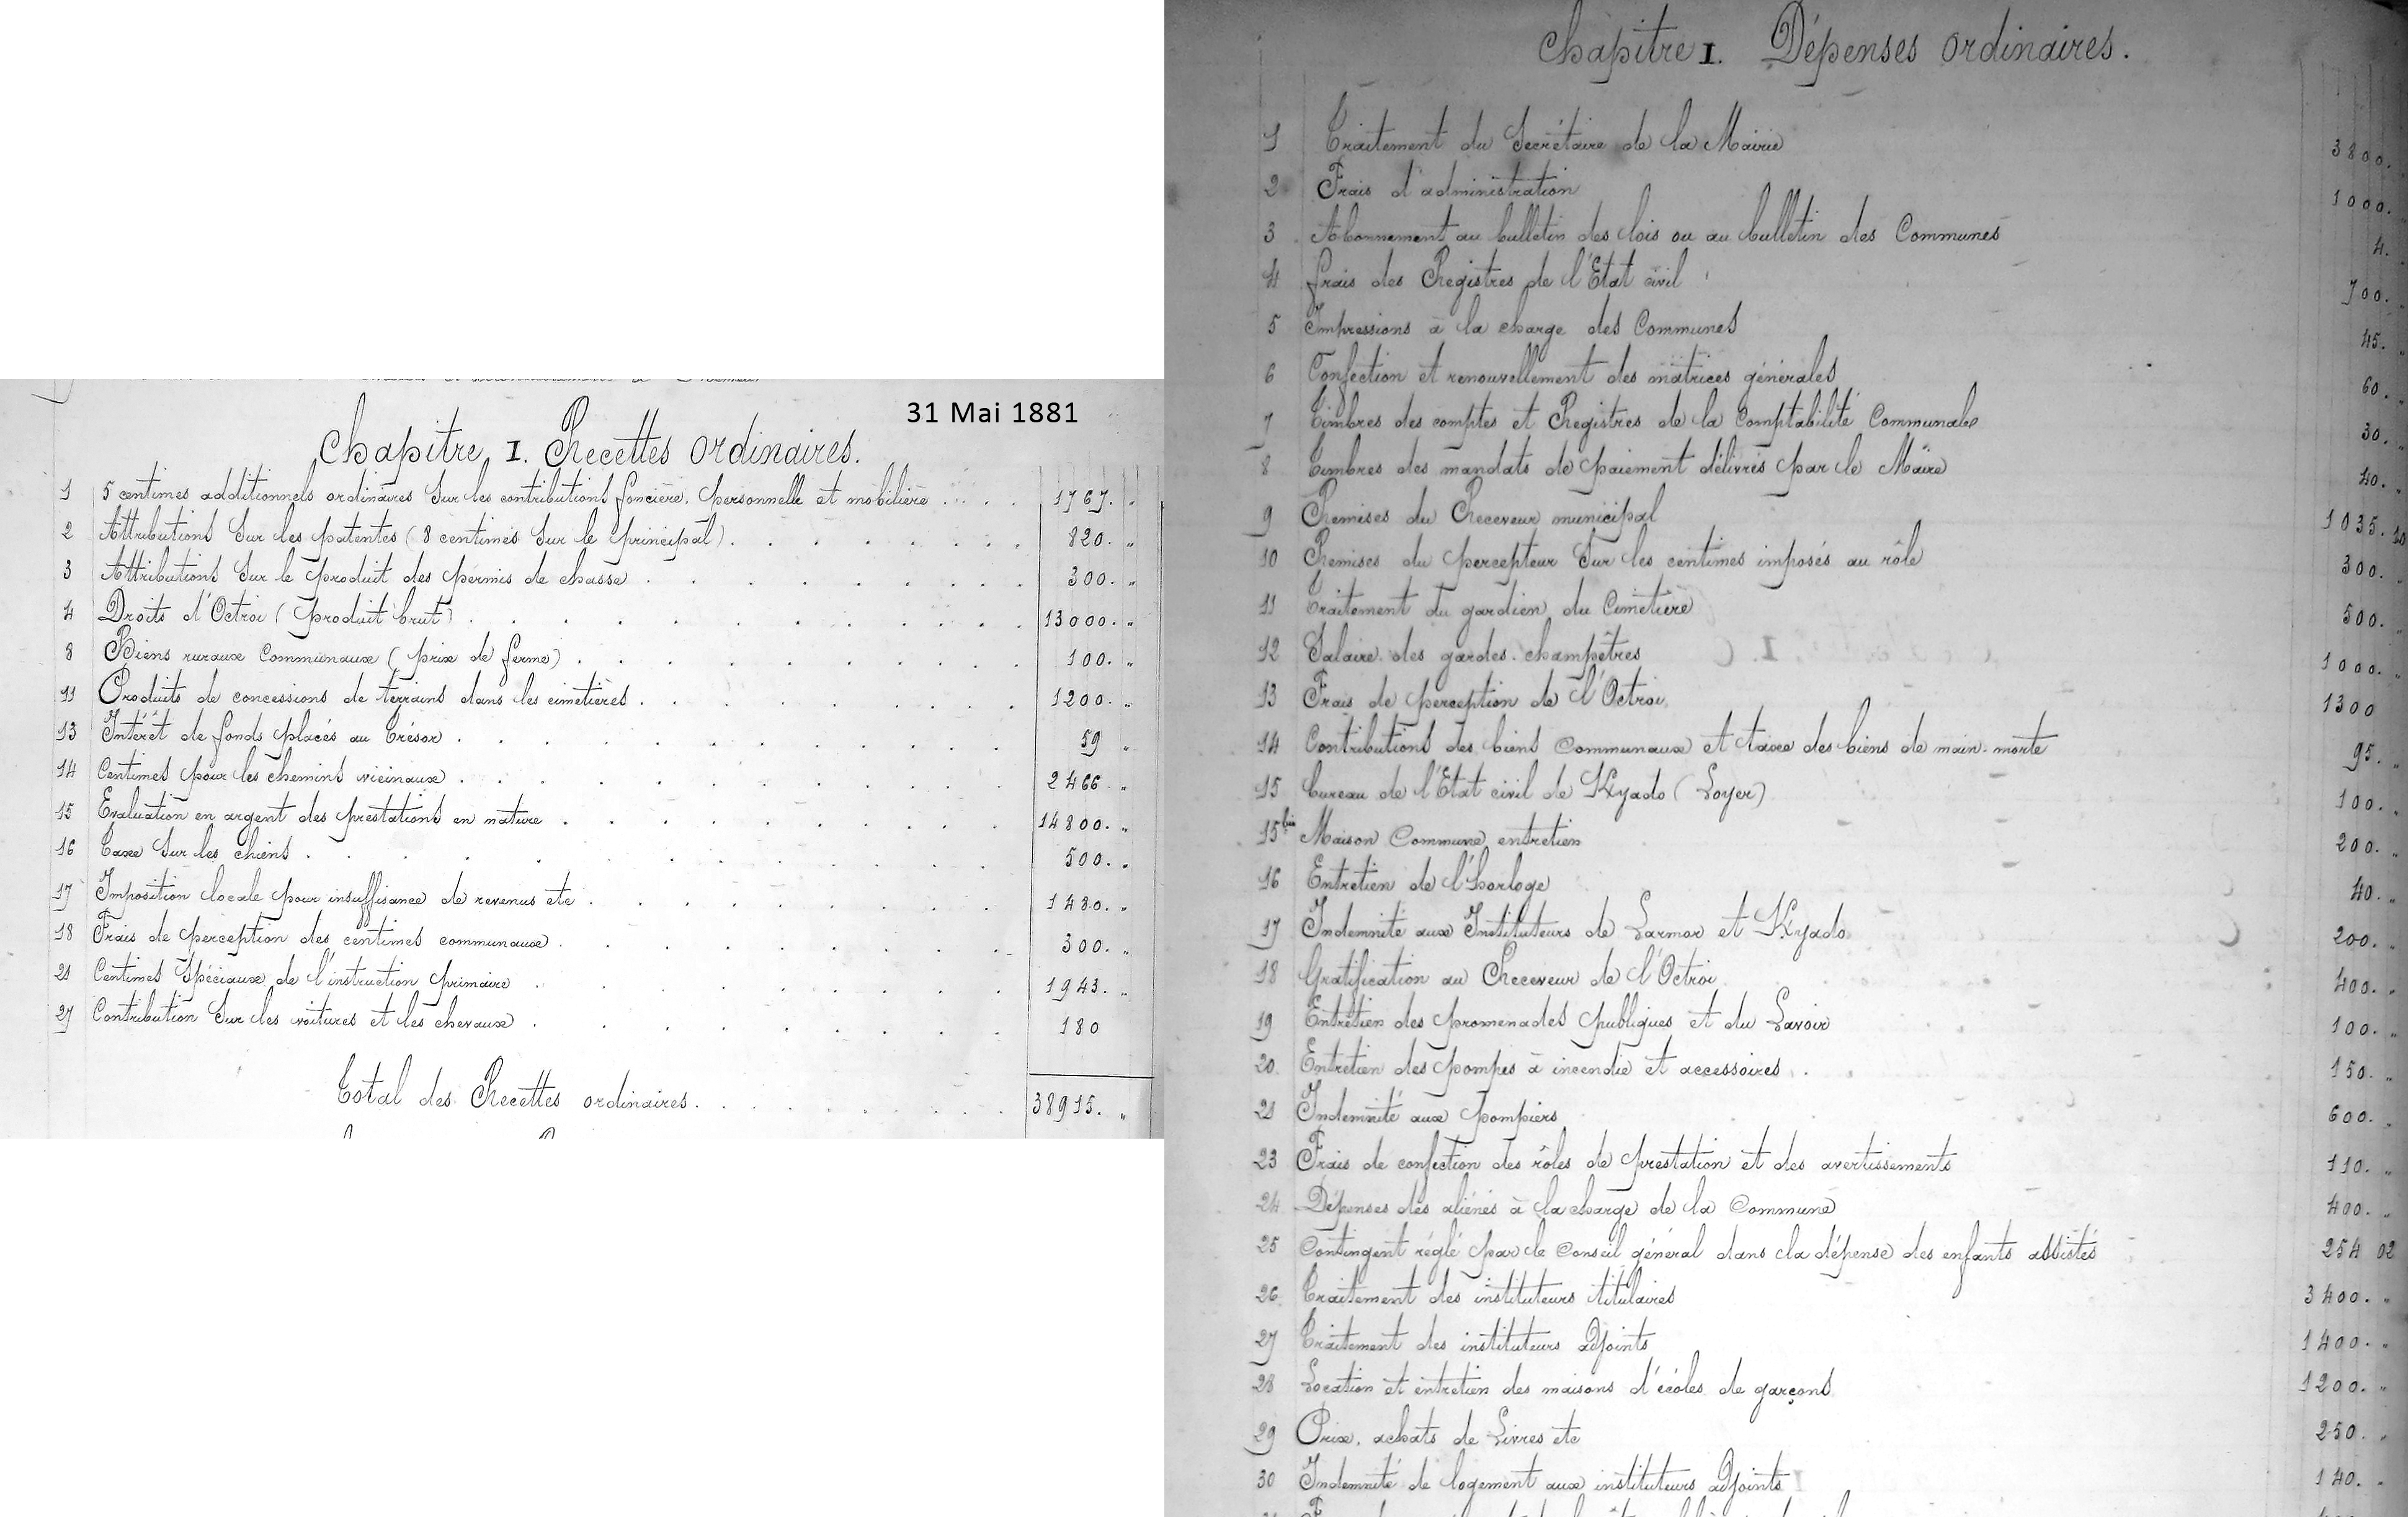 31 Mai 1881
Chapitre I. Recettes ordinaires.
1 5 centimes additionnels ordinaires sur les contributions foncière, personnelle et mobilière .... 1767. "
2 Attributions sur les patentes (8 centimes sur le principal) . . . . . . . 820. "
3 Attributions sur le produit des permis de chasse . . . . . . . . 300. "
4 Droits d'Octroi (produit brut) . . . . . . . . . . 13000. "
8 Biens ruraux Communaux (prix de ferme) . . . . . . . . . 100. "
11 Produits de concessions de terrains dans les cimetières . . . . . . . . 1200. "
13 Intérêt de fonds placés au Trésor . . . . . . . . . . 59 "
14 Centimes pour les chemins vicinaux . . . . . . . . . . 2466. "
15 Evaluation en argent des prestations en nature . . . . . . . . 14800. "
16 Taxe sur les chiens . . . . . . . . . . 500. "
17 Imposition locale pour insuffisance de revenus etc . . . . . . . . 1480. "
18 Frais de perception des centimes communaux . . . . . . . . 300. "
21 Centimes Spéciaux de l'instruction primaire . . . . . . . . 1943. "
27 Contribution sur les voitures et les chevaux . . . . . . . . 180
Total des Recettes ordinaires. . . . . . . . . 38915. "
Chapitre I. Dépenses ordinaires.
1 Traitement du Secrétaire de la Mairie 3800.
2 Frais d'administration 1000.
3 Abonnement au bulletin des lois ou au bulletin des Communes 4.
4 frais des Registres de l'Etat civil 700. "
5 Impressions à la charge des Communes 45. "
6 Confection et renouvellement des matrices générales 60. "
7 Timbres des comptes et Registres de la Comptabilité Communale 30. "
8 Timbres des mandats de paiement délivrés par le Maire 40. "
9 Remises du Receveur municipal 1035.
10 Remises du percepteur sur les centimes imposés au rôle 300. "
11 Traitement du gardien du Cimetière 500. "
12 Salaire des gardes-champêtres 1000. "
13 Frais de perception de l'Octroi 1300
14 Contributions des biens Communaux et taxe des biens de main-morte 95. "
15 bureau de l'Etat civil de Kyado (Loyer) 100. "
15 bis Maison Commune entretien 200. "
16 Entretien de l'horloge 40. "
17 Indemnité aux Instituteurs de Larmor et Kyado 200. "
18 Gratification au Receveur de l'Octroi 400. "
19 Entretien des promenades publiques et du Lavoir 100. "
20. Entretien des pompes à incendie et accessoires . 150. "
21 Indemnité aux pompiers 600. "
23 Frais de confection des rôles de prestation et des avertissements 110. "
24 Dépenses des aliénés à la charge de la Commune 400. "
25 Contingent réglé par le Conseil général dans la dépense des enfants assistés 254 02
26. Traitement des instituteurs titulaires 3400. "
27 Traitement des instituteurs adjoints 1400. "
28 Location et entretien des maisons d'écoles de garçons 1200. "
29 Prix, achats de Livres etc 250. "
30 Indemnité de logement aux instituteurs adjoints 140. "